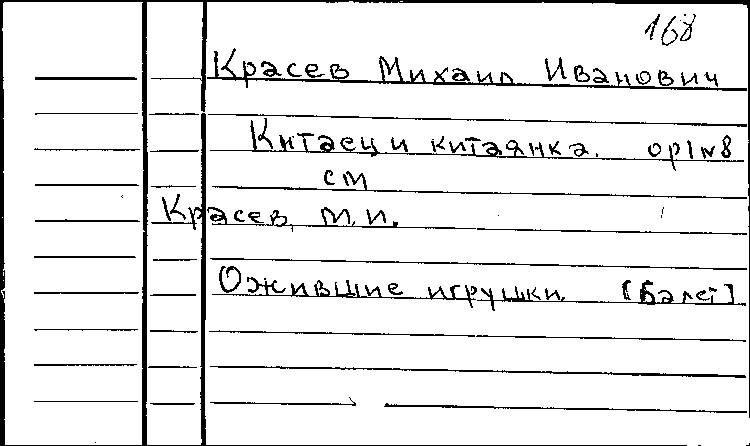 168
Красев Михаил Иванович
Китаец и китаянка. op1 N8
см
Красев, М.И.
Ожившие игрушки. [Балет]